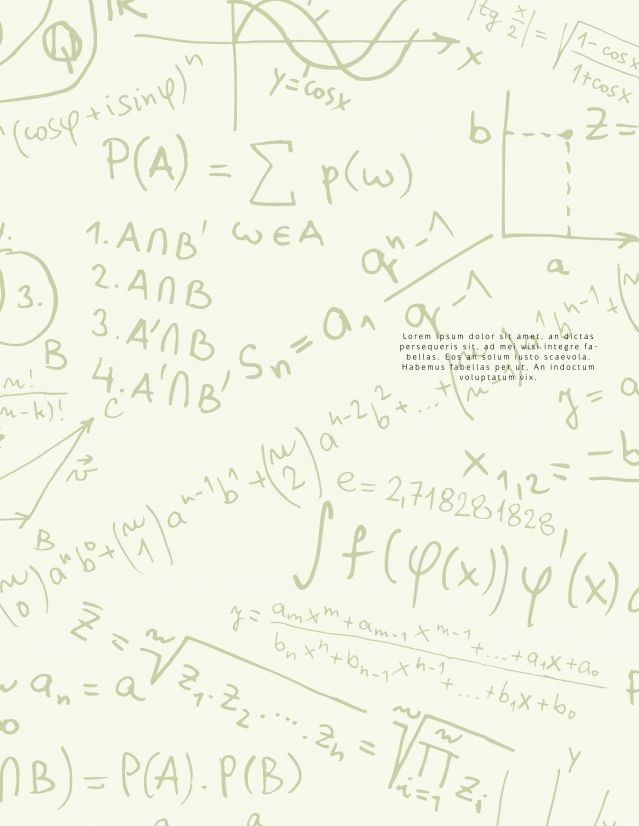 Q
K
|tg x/2| = √ 1 - cosx / 1 + cosx
x
y = cosx
(cosφ + i sinφ)ⁿ
b
z =
a
P(A) = ∑ p(ω)
ω ∈ A
1. A∩B'
2. A∩B
3. A'∩B
4. A'∩B'
3.
B
n!
n-k)!
C
v⃗
B
Sn = a1 qⁿ - 1
q - 1
Lorem ipsum dolor sit amet, an dictas
persequeris sit, ad mei wisi integre fa-
bellas. Eos an solum iusto scaevola.
Habemus fabellas per ut. An indoctum
voluptatum vix.
y = a
x1,2 = -b
e = 2,7182818 28
(n 0) aⁿb⁰ + (n 1) aⁿ⁻¹b¹ + (n 2) aⁿ⁻²b² + ... +
bⁿ⁻¹ +
∫ f(φ(x)) φ'(x)
y = amxᵐ + am-1xᵐ⁻¹ + ... + a1x + a0
bnxⁿ + bn-1xⁿ⁻¹ + ... + b1x + b0
z̄ = ⁿ√ z1 · z2 · ... · zn = ⁿ√ ∏ zi
n
i=1
an = a
∞
∩B) = P(A) · P(B)
y